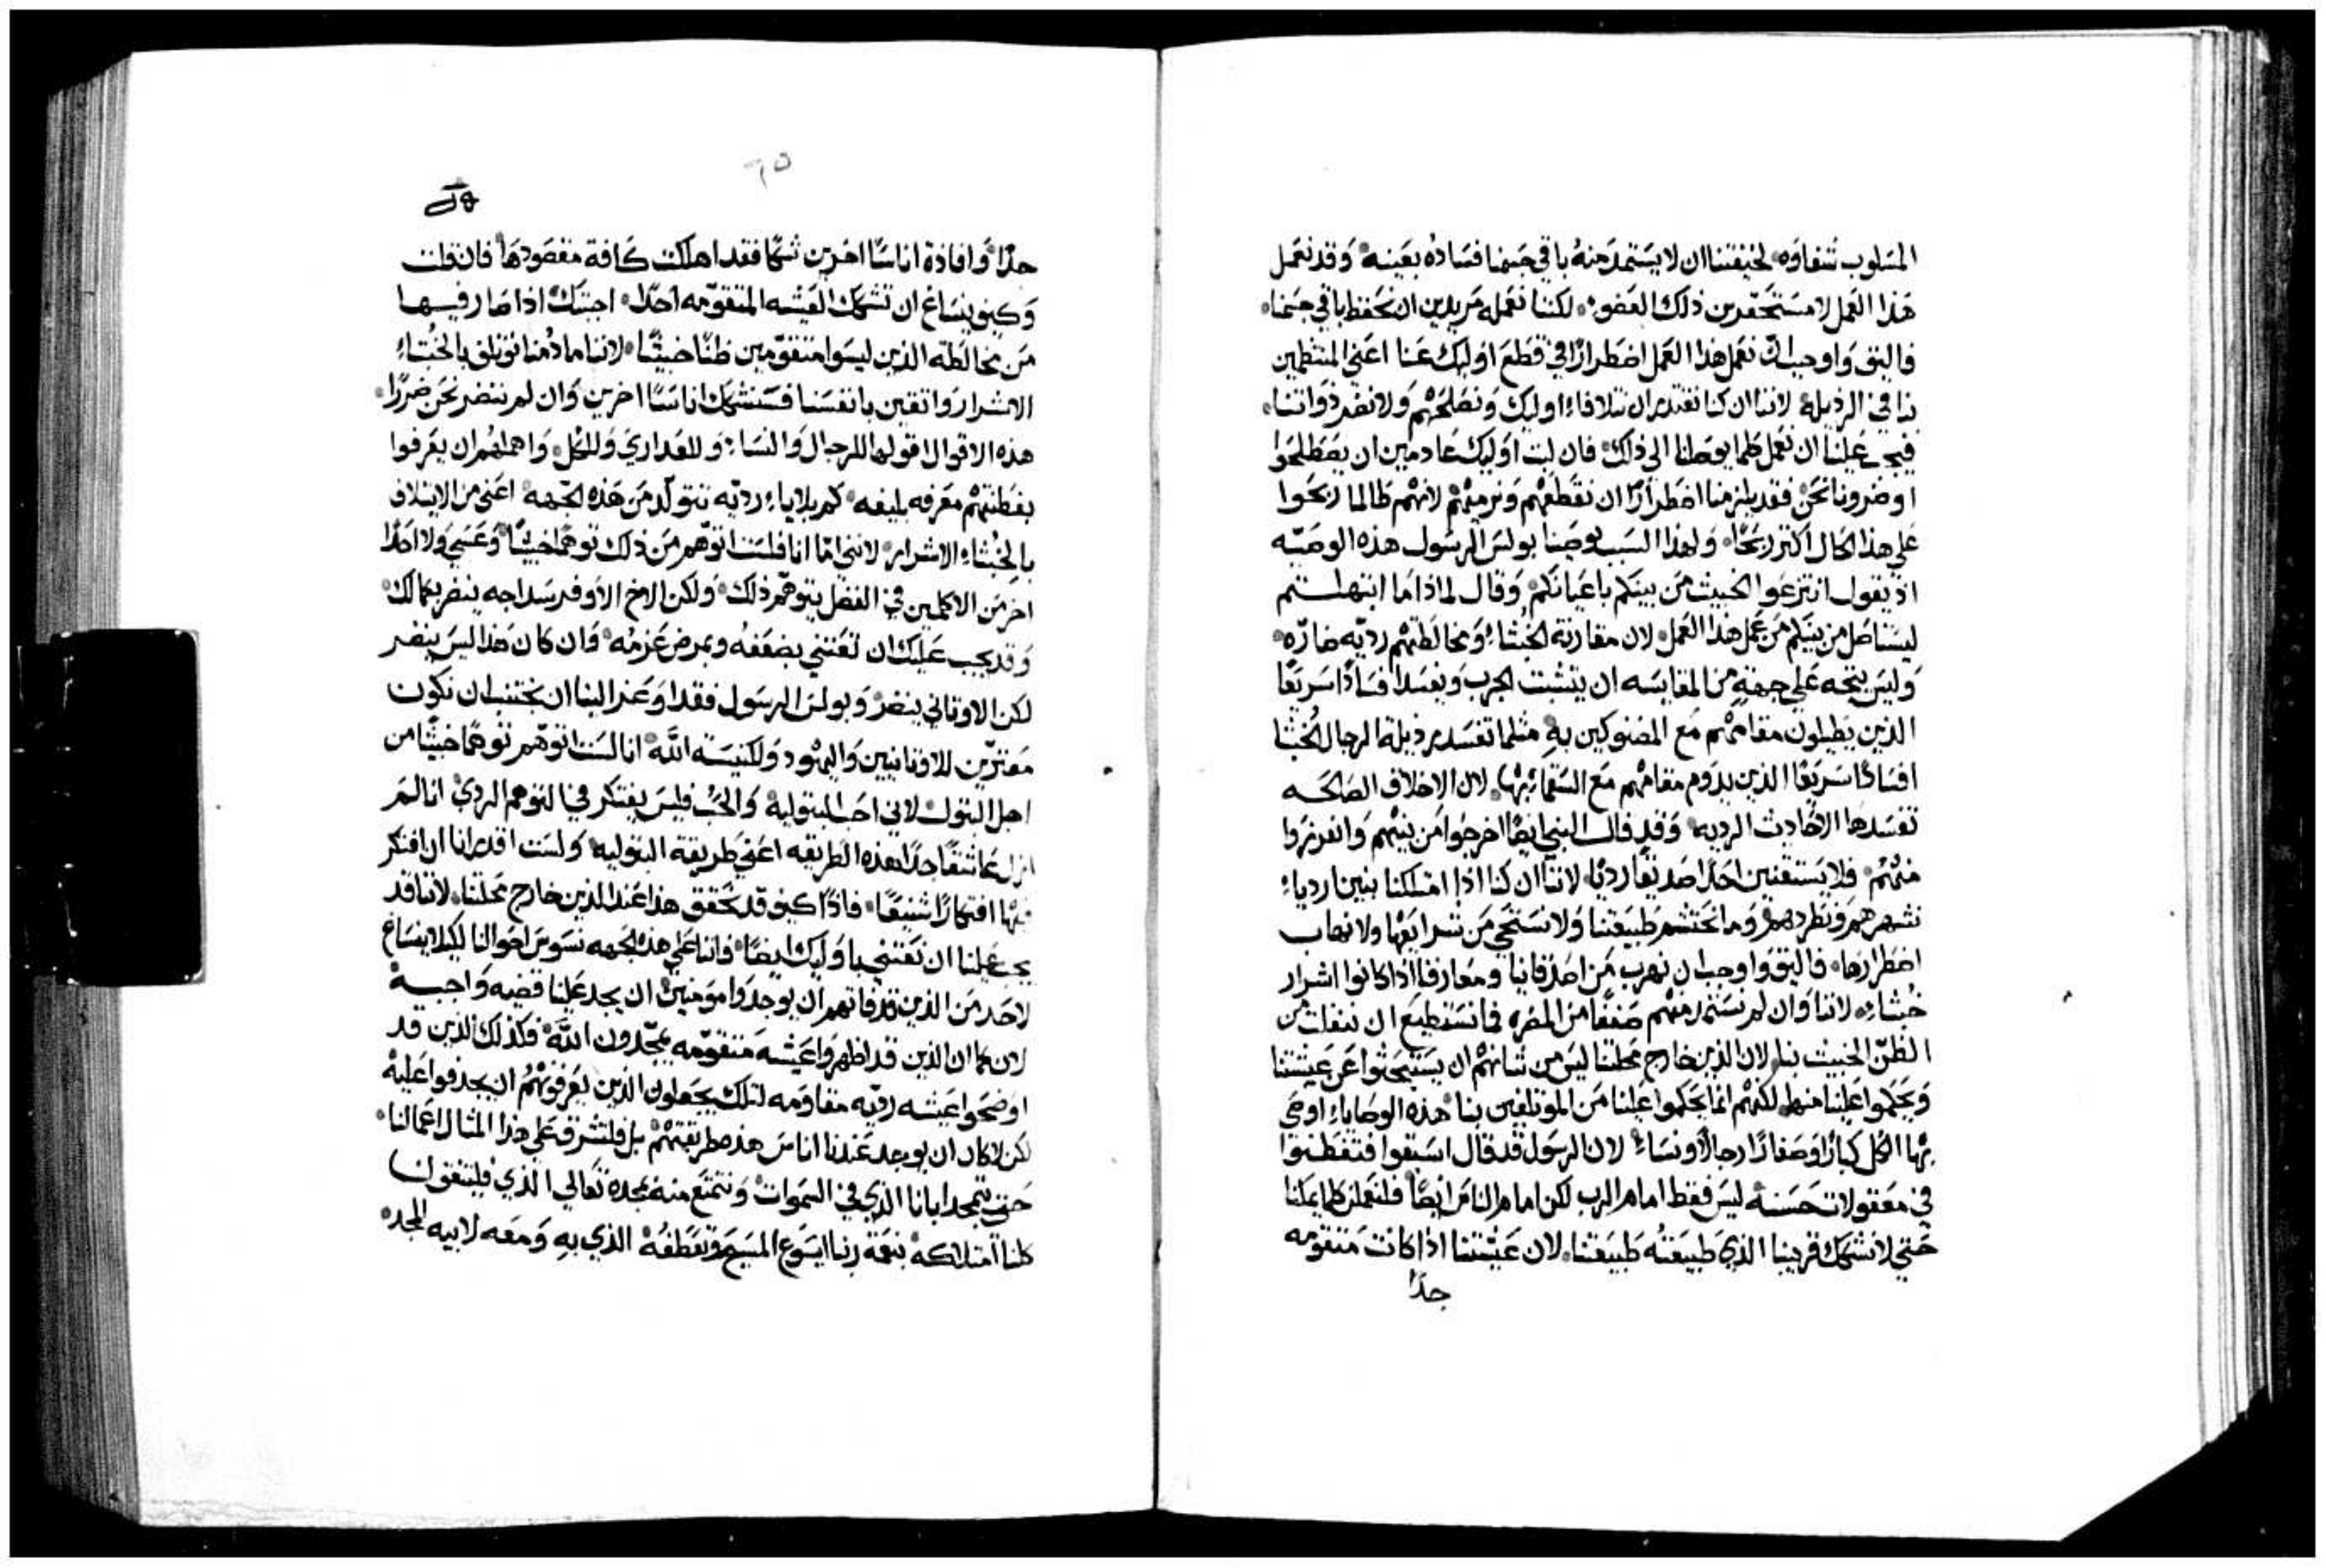 المسلوب شفاوه لخيفتنا ان لا يستمد منه باقي جسمنا فساده بعينه وقد نعمل
هذا العمل لا مستحقرين ذلك العضو لكننا نعمله مريدين ان نحفظ باقي جسمنا
فاليق واوجب ان نعمل هذا العمل اضطرارًا في قطع اوليك عنا اعني المنتظمين
بنا في الرذيلة لاننا ان كنا نقتدر ان نتلافا اوليك ونصلحهم ولا نضر ذواتنا
فيجب علينا ان نعمل كلما يوصلنا الي ذلك فان لبث اوليك عادمين ان يصطلحوا
او ضرونا نحن فقد يلزمنا اضطرارًا ان نقطعهم ونرميهم لانهم طالما ربحوا
علي هذا الحال اكثر ربحًا ولهذا السبب يوصينا بولس الرسول هذه الوصيه
اذ يقول انتزعوا الخبيث من بينكم باعيانكم وقال لماذا ما ابتهلتم
ليستاصل من بينكم من عمل هذا العمل لان مقارنة الخبثاء ومخالطتهم رديه ضارّه
وليس يتجه علي جهة من المقايسه ان يتشبث الجرب ويفسد افسادًا سريعًا
الذين يطيلون مقامهم مع المضنوكين به مثلما تفسد برذيلة الرجال الخبثا
افسادًا سريعًا الذين يدوم مقامهم مع السقماء بها لان الاخلاق الصالحه
تفسدها الاحاديث الرديه وقد قال النبي ايضًا اخرجوا من بينهم وانفرزوا
منهم فلا يستقنين احدًا صديقًا رديًا لاننا ان كنا اذا امتلكنا بنين اردياء
نشهرهم ونطردهم وما نحتشم طبيعتنا ولا نستحي من شرايعها ولا نهاب
اضطرارها فاليق واوجب ان نهرب من اصدقاينا ومعارفنا اذا كانوا اشرار
خبثاء لاننا وان لم نستمد منهم صنفًا من المضره فما نستطيع ان ننفلت من
الظن الخبيث بنا لان الذين خارج محلتنا ليس من شانهم ان يستبحثوا عن عيشتنا
ويحكموا علينا منها لكنهم انما يحكموا علينا من الموتلفين بنا هذه الوصاياء اوصي
بها الكل كبارًا وصغارًا رجالًا ونساء لان الرسول قد قال اسبقوا فتفطنوا
في معقولات حسنة ليس فقط امام الرب لكن امام الناس ايضًا فلنعملن كلما يمكننا
حتي لا نشكك قريبنا الذي طبيعته طبيعتنا لان عيشتنا اذا كانت متقومه
جدًا
٦٥
جدًا وافادة اناسًا اخرين شكًا فقد اهلكت كافة مقصودها فان قلت
وكيف ينساغ ان تشكك العيشه المتقوّمه احدًا اجبتك اذا ما رفيها
من مخالطة الذين ليسوا متقوّمين ظنًا خبيثًا لاننا ما دمنا نوتلق بالخبثاء
الاشرار واثقين بانفسنا فسنشكك اناسًا اخرين وان لم ننضر نحن ضررًا
هذه الاقوال اقولها للرجال والنساء وللعداري وللكل واهملهم ان يعرفوا
بفطنتهم معرفه بليغه كم بلاياء رديّه تتولّد من هذه الجهه اعني من الايتلاف
بالخبثاء الاشرار لانني امّا انا فلست اتوهم من ذلك توهمًا خبيثًا وعسي ولا احدًا
اخر من الاكملين في الفضل يتوهم ذلك ولكن الاخ الاوفر سداجه ينضر بكمالك
وقد يجب عليك ان تعتني بضعفه وبمرض عزمه وان كان هذا ليس ينضر
لكن الاوثاني ينضر وبولس الرسول فقد اوعز الينا ان نجتنب ان نكون
معثرين للاوثانيين واليهود ولكنيسة الله انا لست اتوهم توهمًا خبيثًا من
اجل البتول لاني احب البتولية والحب فليس يفتكر في التوهم الردي انا لم
ازل عاشقًا جدًا لهذه الطريقه اعني طريقة البتوليه ولست اقدر انا ان افتكر
فيها افتكارًا شنيعًا فاذًا كيف قد تحقق هذا عند الذين خارج محلتنا لاننا قد
يجب علينا ان نعتني باوليك ايضًا فاننا علي هذه الجهه نسوس احوالنا لكيلا ينساغ
لاحد من الذين قد فاتهم ان يوجدوا مومنين ان يجد علينا قضيه واجبة
لان كما ان الذين قد اظهروا عيشه متقوّمه يمجّدون الله فكذلك الذين قد
اوضحوا عيشه رديّه مقاومه لتلك يجعلون الذين يعرفونهم ان يجدفوا عليه
لكن لا كان ان يوجد عندنا اناس هذه طريقتهم بل فلتشرق علي هذا المثال اعمالنا
حتي يتمجد ابانا الذي في السموات ونتمتع منه بمجده تعالي الذي فليتفق ان
كلنا امتلاكه بنعمة ربنا ايسوع المسيح وتعطفه الذي به ومعه لابيه المجد